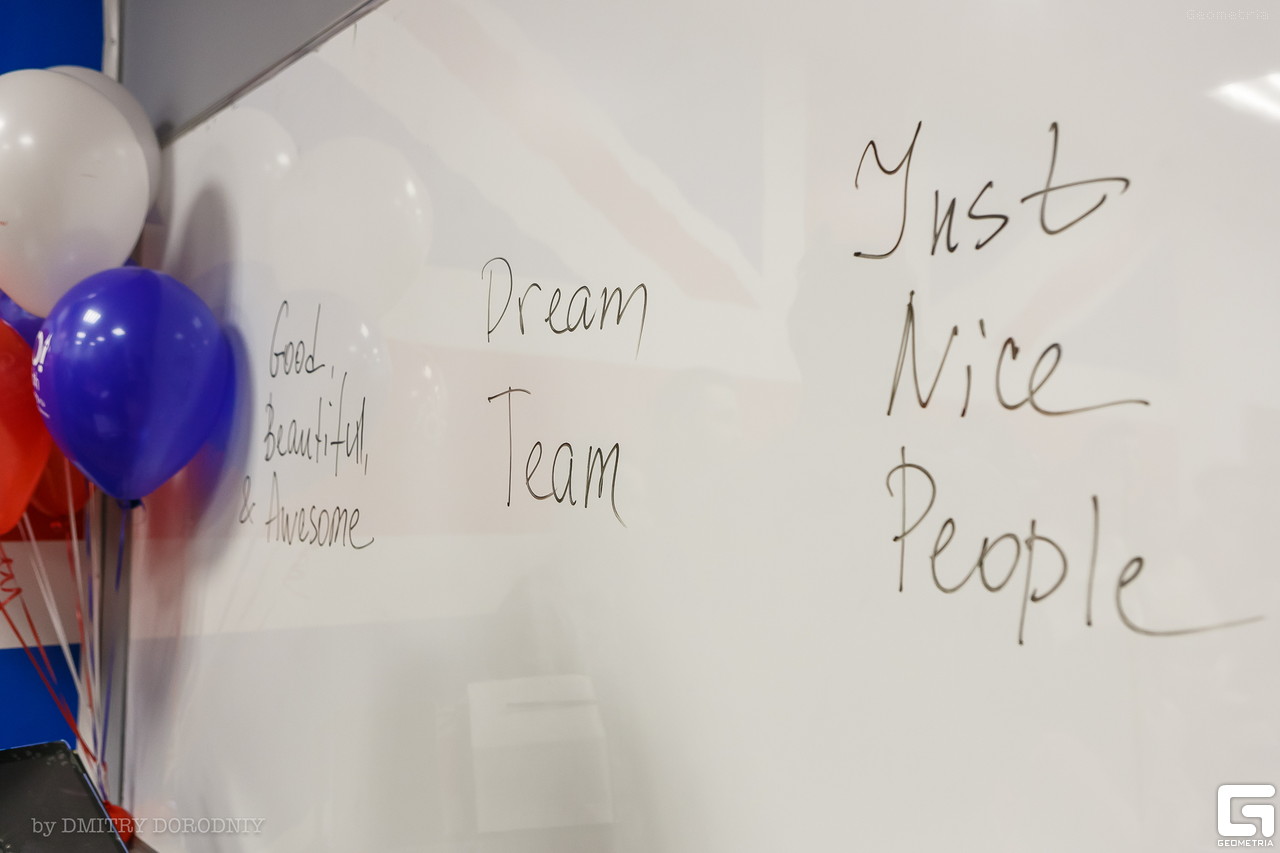 Good,
Beautiful,
& Awesome
Dream
Team
Just
Nice
People
by DMITRY DORODNIY
GEOMETRIA
Geometria